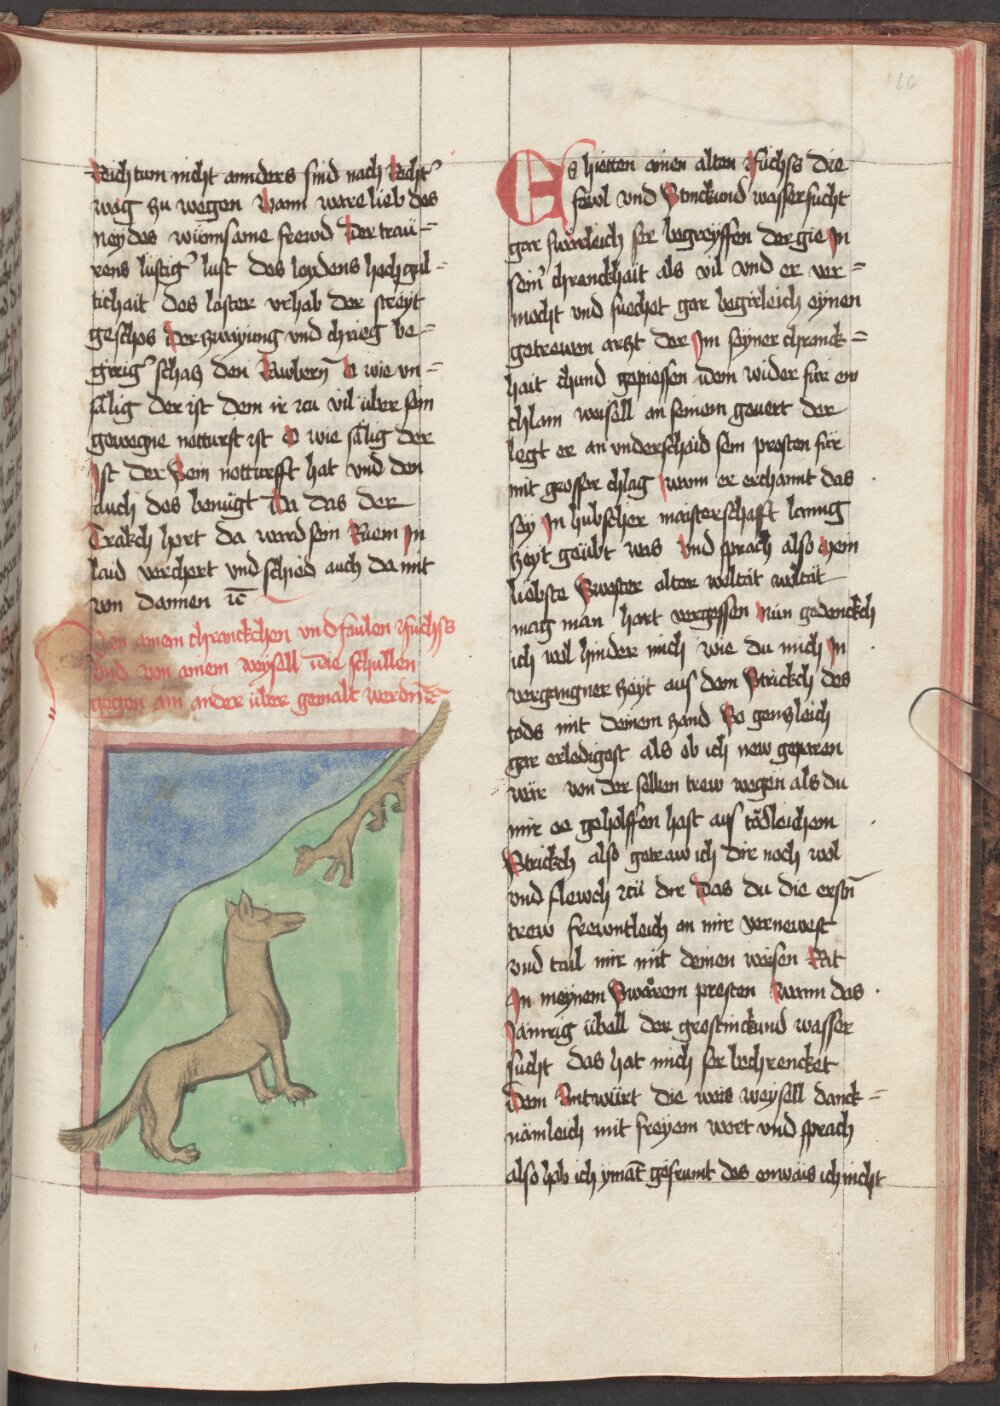 Reichtum nicht annders sind nach Recht͛
wag zu wegen Wann ware lieb des
neÿdes wunnsame frewd Der trau=
rens lustig͛ lust des leydens hochgul=
tichait des laster vrhab der streyt
geschos Der zwayung vnd chrieg be=
girig͛ schatz den Rawbern̄ O wie vn=
sälig der ist dem ir zu vil über sein
gewegne notturfft ist O wie sälig der
Ist der Sein notturfft hat vnd den
auch des benügt Da das der
Trakch hort da ward sein Ruem In
laid verchert vnd schied auch da mit
von dannen ꝛc
Von ainem chranckchen vnd faulen Fuchss
vnd von ainem weysell die schullen
gegen ain ander über gemalt werdn̄ ꝛc
16
Es hietten ainen alten Fuchss die
fewl vnd Stinckund wassersucht
gar swärleich ser begreyffen der gie In
sein͛ chranckhait als vil vnd er ver=
mocht vnd suechet gar begirleich eynen
getrewen artzt der Im seyner chranck=
hait chund gepiessen dem wider für ein
chlain weysell an seinem geuert der
legt er an vnderschaid sein presten für
mit grosser chlag wann er erchannt das
sey In hübscher maisterschafft lanng
zeyt geübt was vnd sprach also Mein
liebste Swester alter weltät weltät
mag man hart vergessen Nün gedenckch
ich wol hinder mich wie du mich In
vergangner zeyt aus dem Strickch des
tods mit deinem zand So genczleich
gar erledigest als ob ich new geparen
wär von der selben trew wegen als du
mir ee geholffen hast aus tödleichem
Strickch also getraw ich dir noch wol
vnd flewch zu dir Das du die erstn̄
trew frewntleich an mir vernewest
vnd tail mir mit deinen weisen Rat
In meynem Swärem presten Wann das
Jämrig übell der grostinckund wasser
sucht das hat mich ser bechrencket
Dem Antwürt die weis weysell danck=
nämleich mit freyem wort vnd sprach
also hab ich ymāt gefrumt des enwais ich nicht